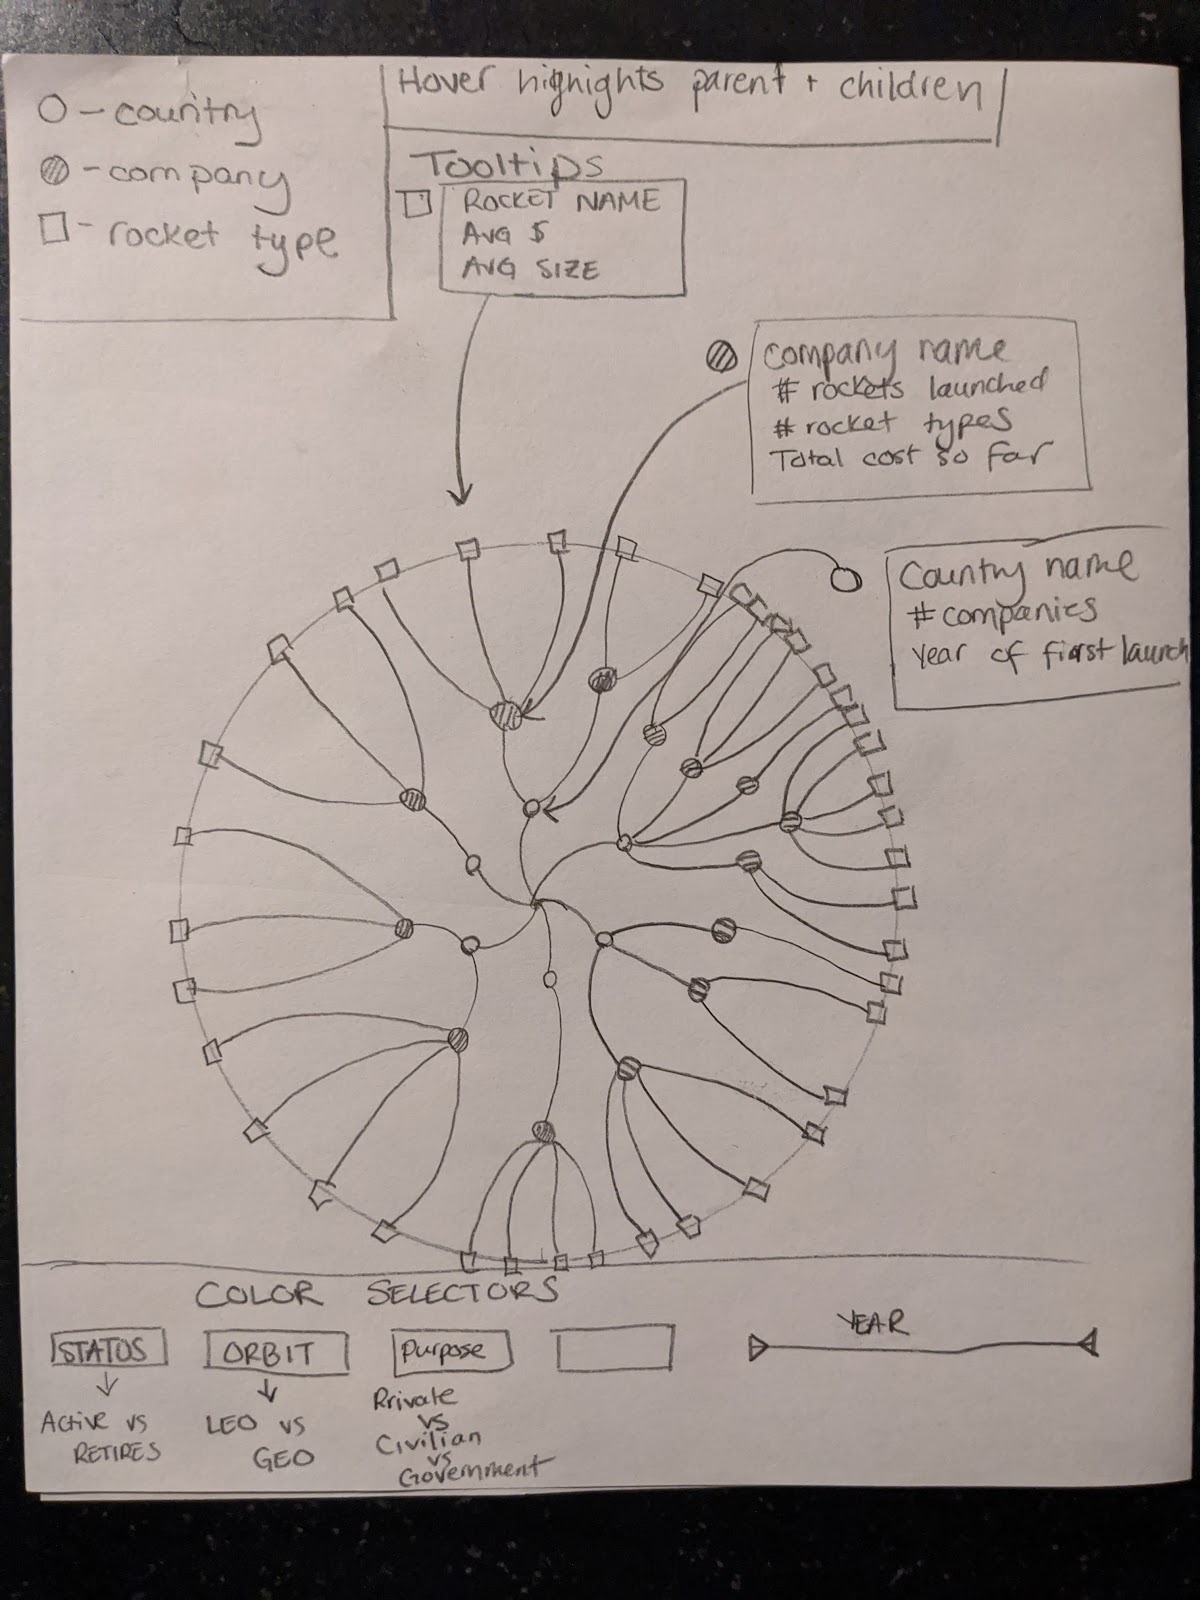 O - country
- company
- rocket type
Hover highights parent + children
Tooltips
ROCKET NAME
AVG $
AVG SIZE
company name
# rockets launched
# rocket types
Total cost so far
Country name
# companies
Year of first launch
COLOR SELECTORS
STATUS
ORBIT
Purpose
YEAR
Active vs
RETIRES
LEO vs
GEO
Private
vs
Civilian
vs
Government